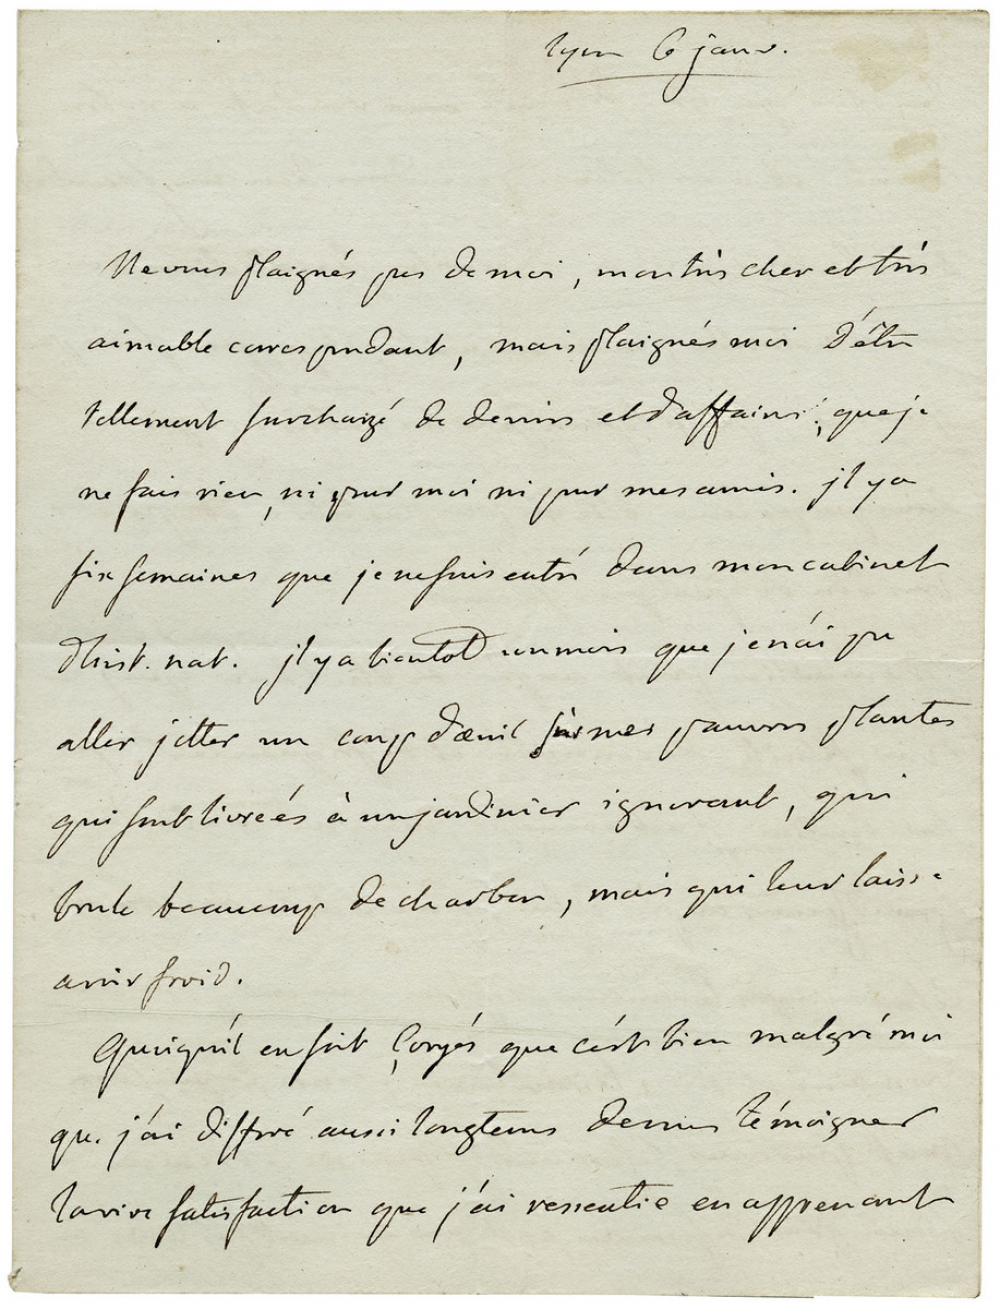 lyon 6 janv.
Ne vous plaignés pas de moi, mon très cher et très
aimable correspondant, mais plaignés moi d'être
tellement surchargé de devoirs et d'affaires, que je
ne fais rien, ni pour moi ni pour mes amis. jl y a
six semaines que je ne suis entré dans mon cabinet
d'hist. nat. jl y a bientot un mois que je n'ai pu
aller jetter un coup d'œuil sur mes pauvres plantes
qui sont livreés à un jardinier ignorant, qui
brule beaucoup de charbon, mais qui leur laisse
avoir froid.
Quoiqu'il en soit soyés que c'est bien malgré moi
que j'ai differé aussi longtems de vous témoigner
la vive satisfaction que j'ai ressentie en apprenant